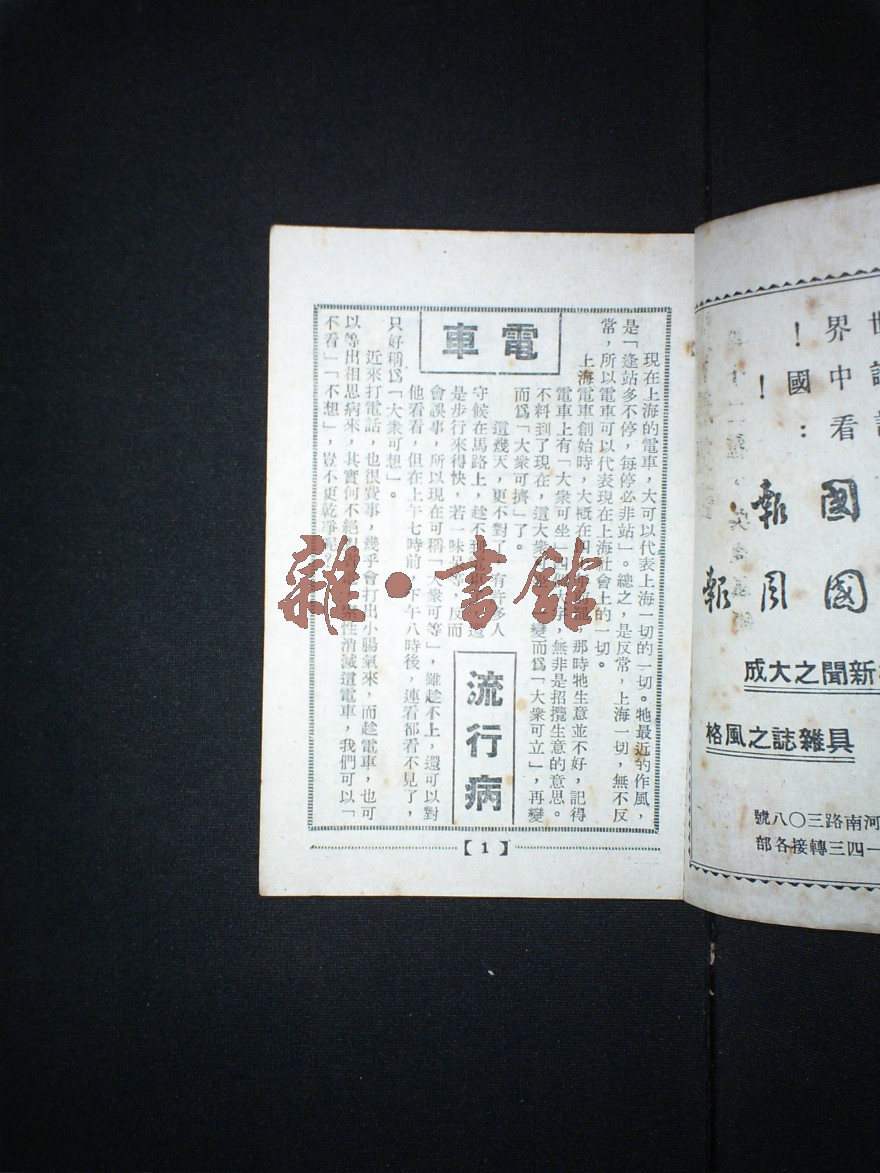 界中看
！國：
！
國
報
國
月
報
新聞之大成
具雜誌之風格
河南路三〇八號
一四三轉接各部
電車
流行病
現在上海的電車，大可以代表上海一切的一切。牠最近的作風，
是「逢站多不停，每停必非站」。總之，是反常，上海一切，無不反
常，所以電車可以代表現在上海社會上的一切。
上海電車創始時，大概在四 罷，那時牠生意並不好，記得
電車上有「大衆可坐」四個大字，無非是招攬生意的意思。
不料到了現在，這大衆可 變而爲「大衆可立」，再變
而爲「大衆可擠」了。
這幾天，更不對了，有許多人
守候在馬路上，趁不 還
是步行來得快，若一味呆等，反而
會誤事，所以現在可稱「大衆可等」，雖趁不上，還可以對
他看看，但在上午七時前，下午八時後，連看都看不見了，
只好稱爲「大衆可想」。
近來打電話，也很費事，幾乎會打出小腸氣來，而趁電車，也可
以等出相思病來，其實何不絕 索性消滅這電車，我們可以「
不看」「不想」，豈不更乾淨
【1】
雜·書館